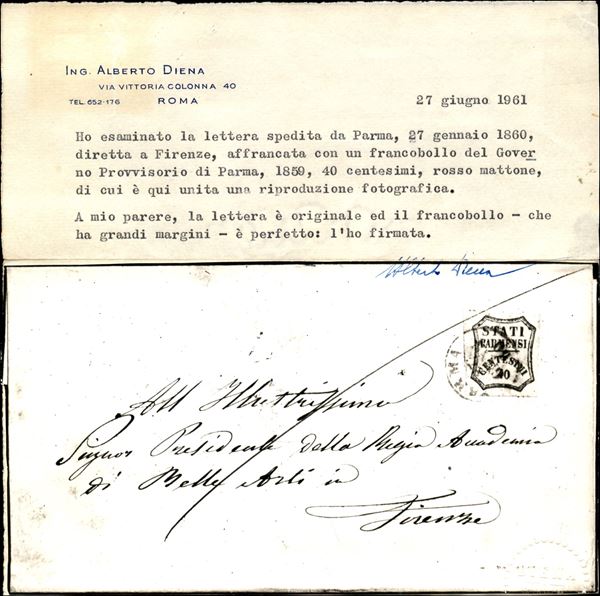 ING. ALBERTO DIENA
VIA VITTORIA COLONNA 40
TEL. 652-176 ROMA
27 giugno 1961
Ho esaminato la lettera spedita da Parma, 27 gennaio 1860,
diretta a Firenze, affrancata con un francobollo del Gover
no Provvisorio di Parma, 1859, 40 centesimi, rosso mattone,
di cui è qui unita una riproduzione fotografica.
A mio parere, la lettera è originale ed il francobollo - che
ha grandi margini - è perfetto: l'ho firmata.
Alberto Diena
STATI
PARMENSI
CENTESIMI
PARMA
All Illustrissimo
Signor Presidente della Regia Accademia
di Belle Arti in
Firenze